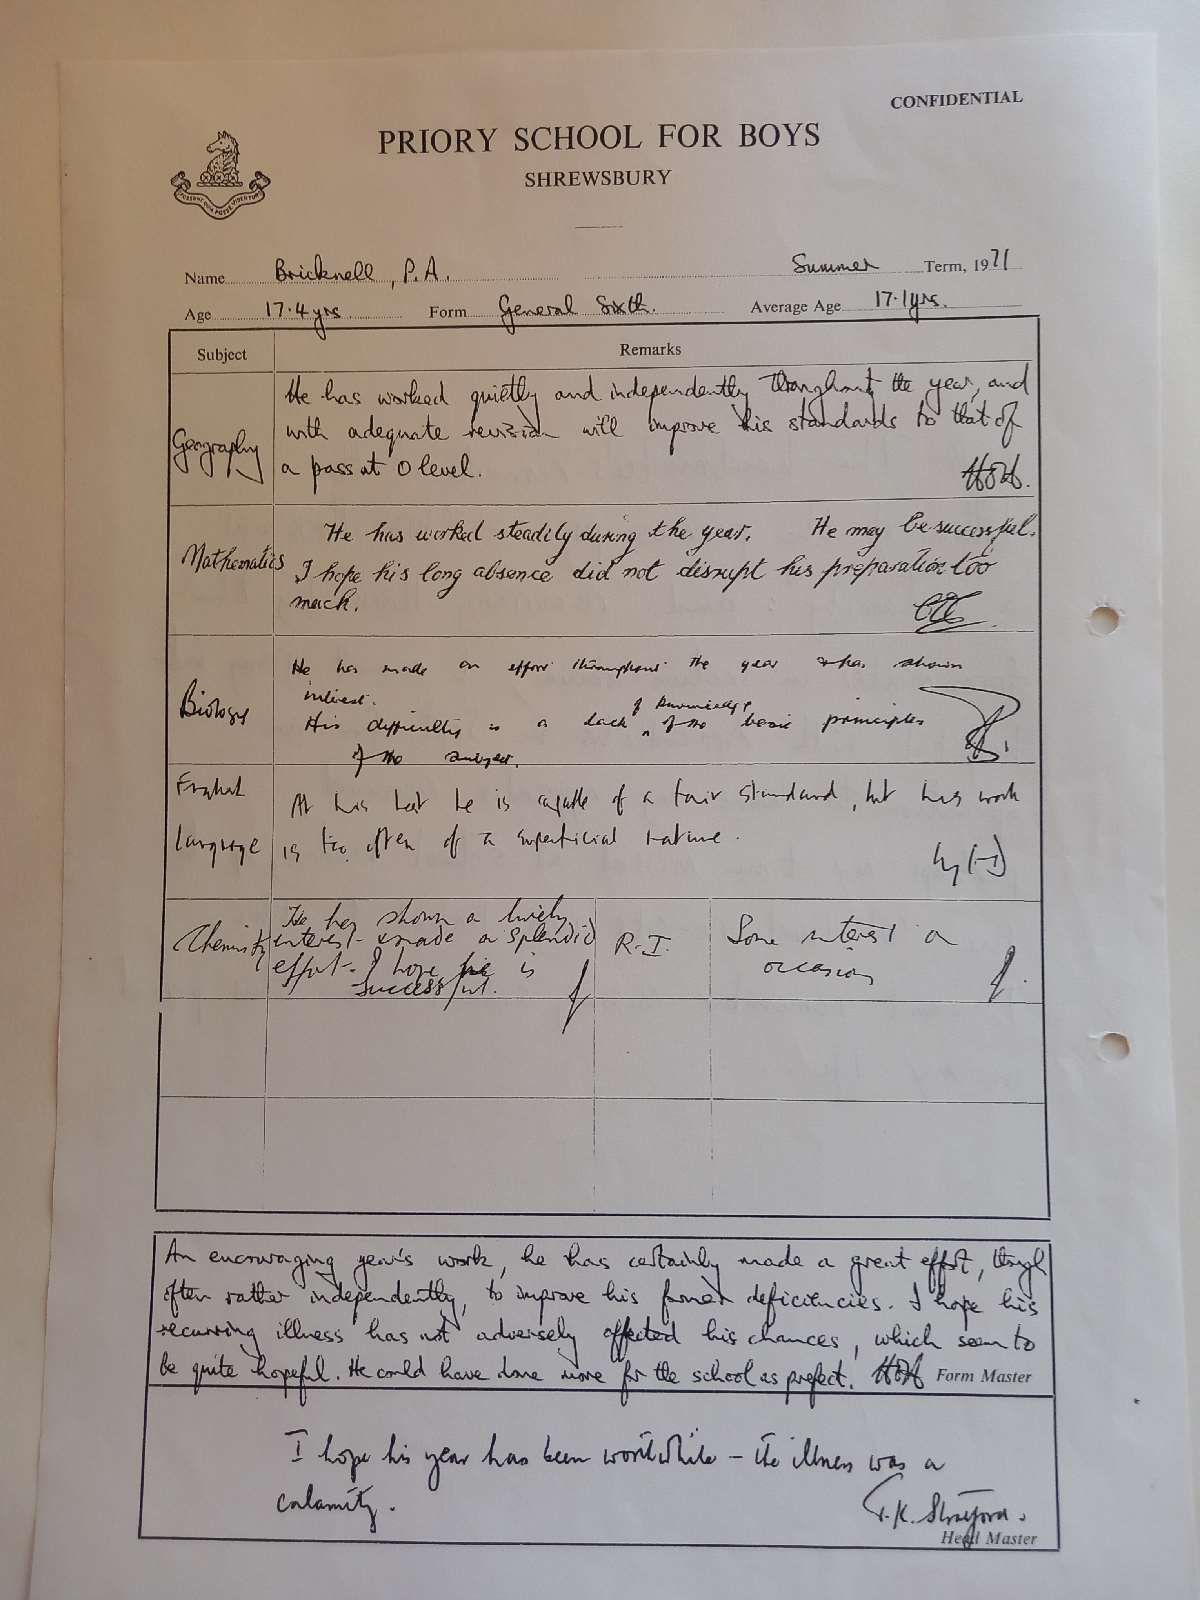 CONFIDENTIAL
PRIORY SCHOOL FOR BOYS
SHREWSBURY
POSSUNT QUIA POSSE VIDENTUR
Name Bricknell, P.A. Summer Term, 1971
Age 17.4 yrs Form General Sixth. Average Age 17.1 yrs.
Subject Remarks
He has worked quietly and independently throughout the year, and
with adequate revision will improve his standards to that of
Geography a pass at O level.
He has worked steadily during the year. He may be successful.
Mathematics I hope his long absence did not disrupt his preparation too
much.
He has made an effort throughout the year & has shown
interest.
Biology His difficulty is a lack of knowledge of the basic principles
of the subject.
English
Language
At his best he is capable of a fair standard, but his work
is too often of a superficial nature.
Chemistry
He has shown a lively
interest & made a splendid
effort. I hope he is
successful.
R.I.
Some interest on
occasion
An encouraging year's work, he has certainly made a great effort, though
often rather independently, to improve his former deficiencies. I hope his
recurring illness has not adversely affected his chances, which seem to
be quite hopeful. He could have done more for the school as prefect. Form Master
I hope his year has been worthwhile – the illness was a
calamity.
Head Master